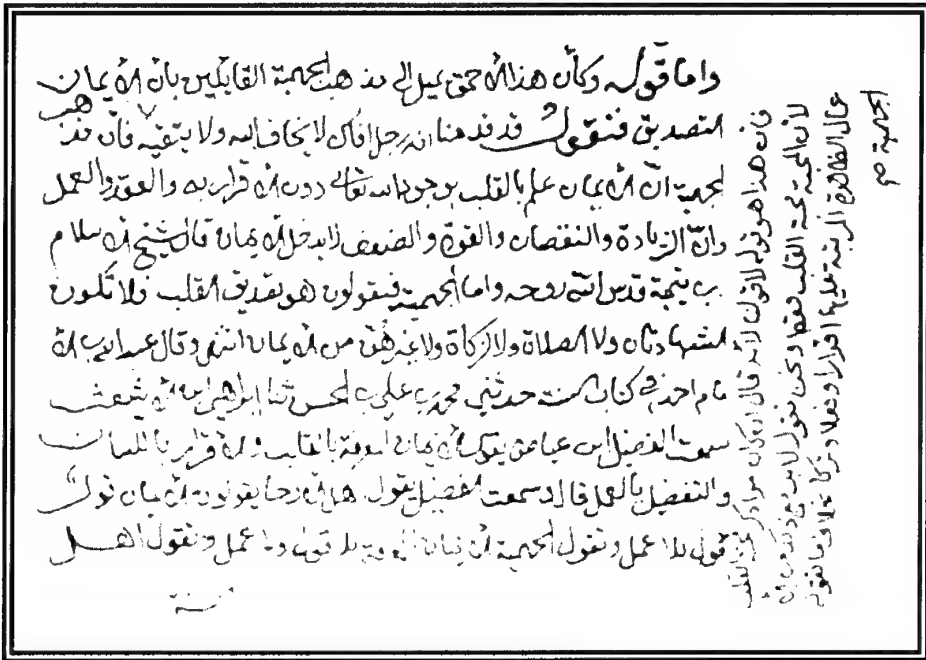 واما قوله وكأن هذا الاحمق يميل الى مذهب الجهمية القايلين بان الايمان
التصديق فنقول قد قدمنا انه رجل افاك لا يخاف الله ولا يتقيه فان مذهب
الجهمية ان الايمان علم بالقلب بوجود الله تعالى دون الاقرار به والعقد والعمل
وان الزيادة والنقصان والقوة والضعف لا يدخل الايمان قال شيخ الاسلام
بن تيمية قدس الله روحه واما الجهمية فيقولون هو تصديق القلب فلا تكون
الشهادتان ولا الصلاة ولا الزكاة ولا غيرهن من الايمان انتهى وقال عبد الله بن الا
مام احمد في كتاب السنة حدثني محمد بن علي بن الحسن ثنا ابراهيم بن الاشعث
سمعت الفضيل ابن عياض يقول الايمان المعرفة بالقلب والاقرار باللسان
والتفضيل بالعمل قال وسمعت الفضيل يقول اهل الارجا يقولون الايمان قول
قول بلا عمل وتقول الجهمية الايمان المعرفة بلا قول ولا عمل وتقول اهل
السنة
فان هذا هو قوله لا قول قال ان كان مراد القلب
لان المحبة محبة القلب فقط ونحن نقول لابد
عمال الظاهرة اقرارا وفعلا وتركا بخلاف ما تقوله
الجهمية صح